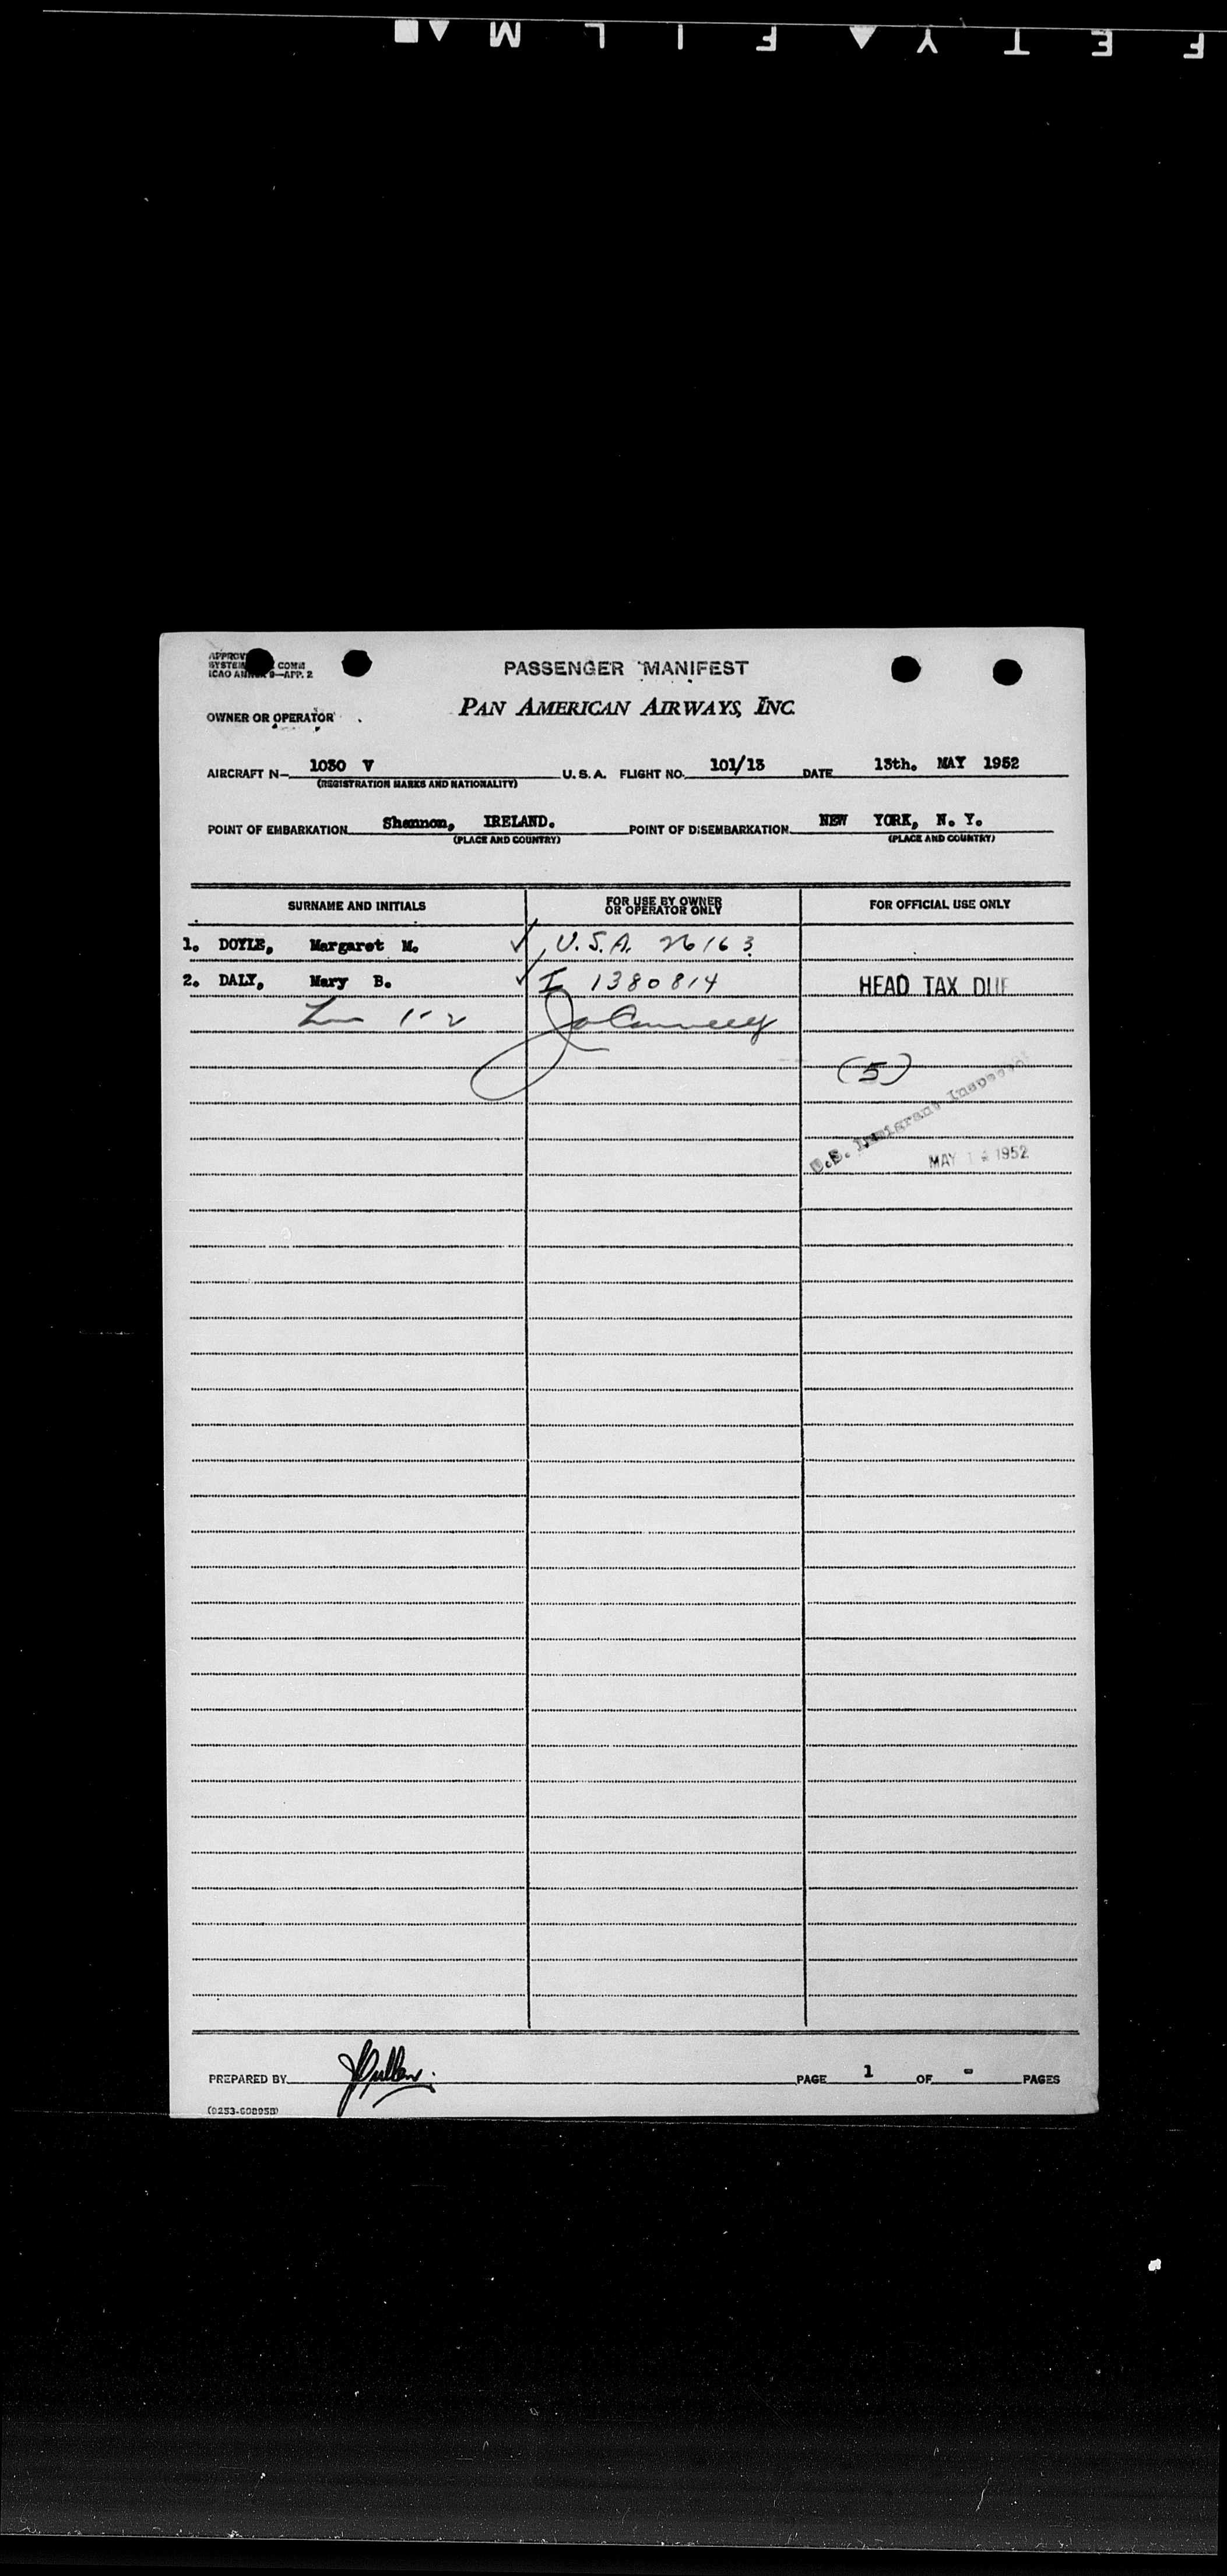 SAFETY FILM
APPROV
SYSTEM COMM
ICAO ANNEX 9—APP. 2
PASSENGER MANIFEST
OWNER OR OPERATOR
PAN AMERICAN AIRWAYS, INC.
AIRCRAFT N— 1030 V U. S. A. FLIGHT NO. 101/13 DATE 13th. MAY 1952
(REGISTRATION MARKS AND NATIONALITY)
POINT OF EMBARKATION Shannon, IRELAND. POINT OF DISEMBARKATION NEW YORK, N. Y.
(PLACE AND COUNTRY) (PLACE AND COUNTRY)
SURNAME AND INITIALS FOR USE BY OWNER OR OPERATOR ONLY FOR OFFICIAL USE ONLY
1. DOYLE, Margaret M. ✓ U.S.A. 26163
2. DALY, Mary B. ✓ I 1380814 HEAD TAX DUE
1-2
(5)
U.S. Immigrant Inspector
MAY 1 1952
PREPARED BY PAGE 1 OF - PAGES